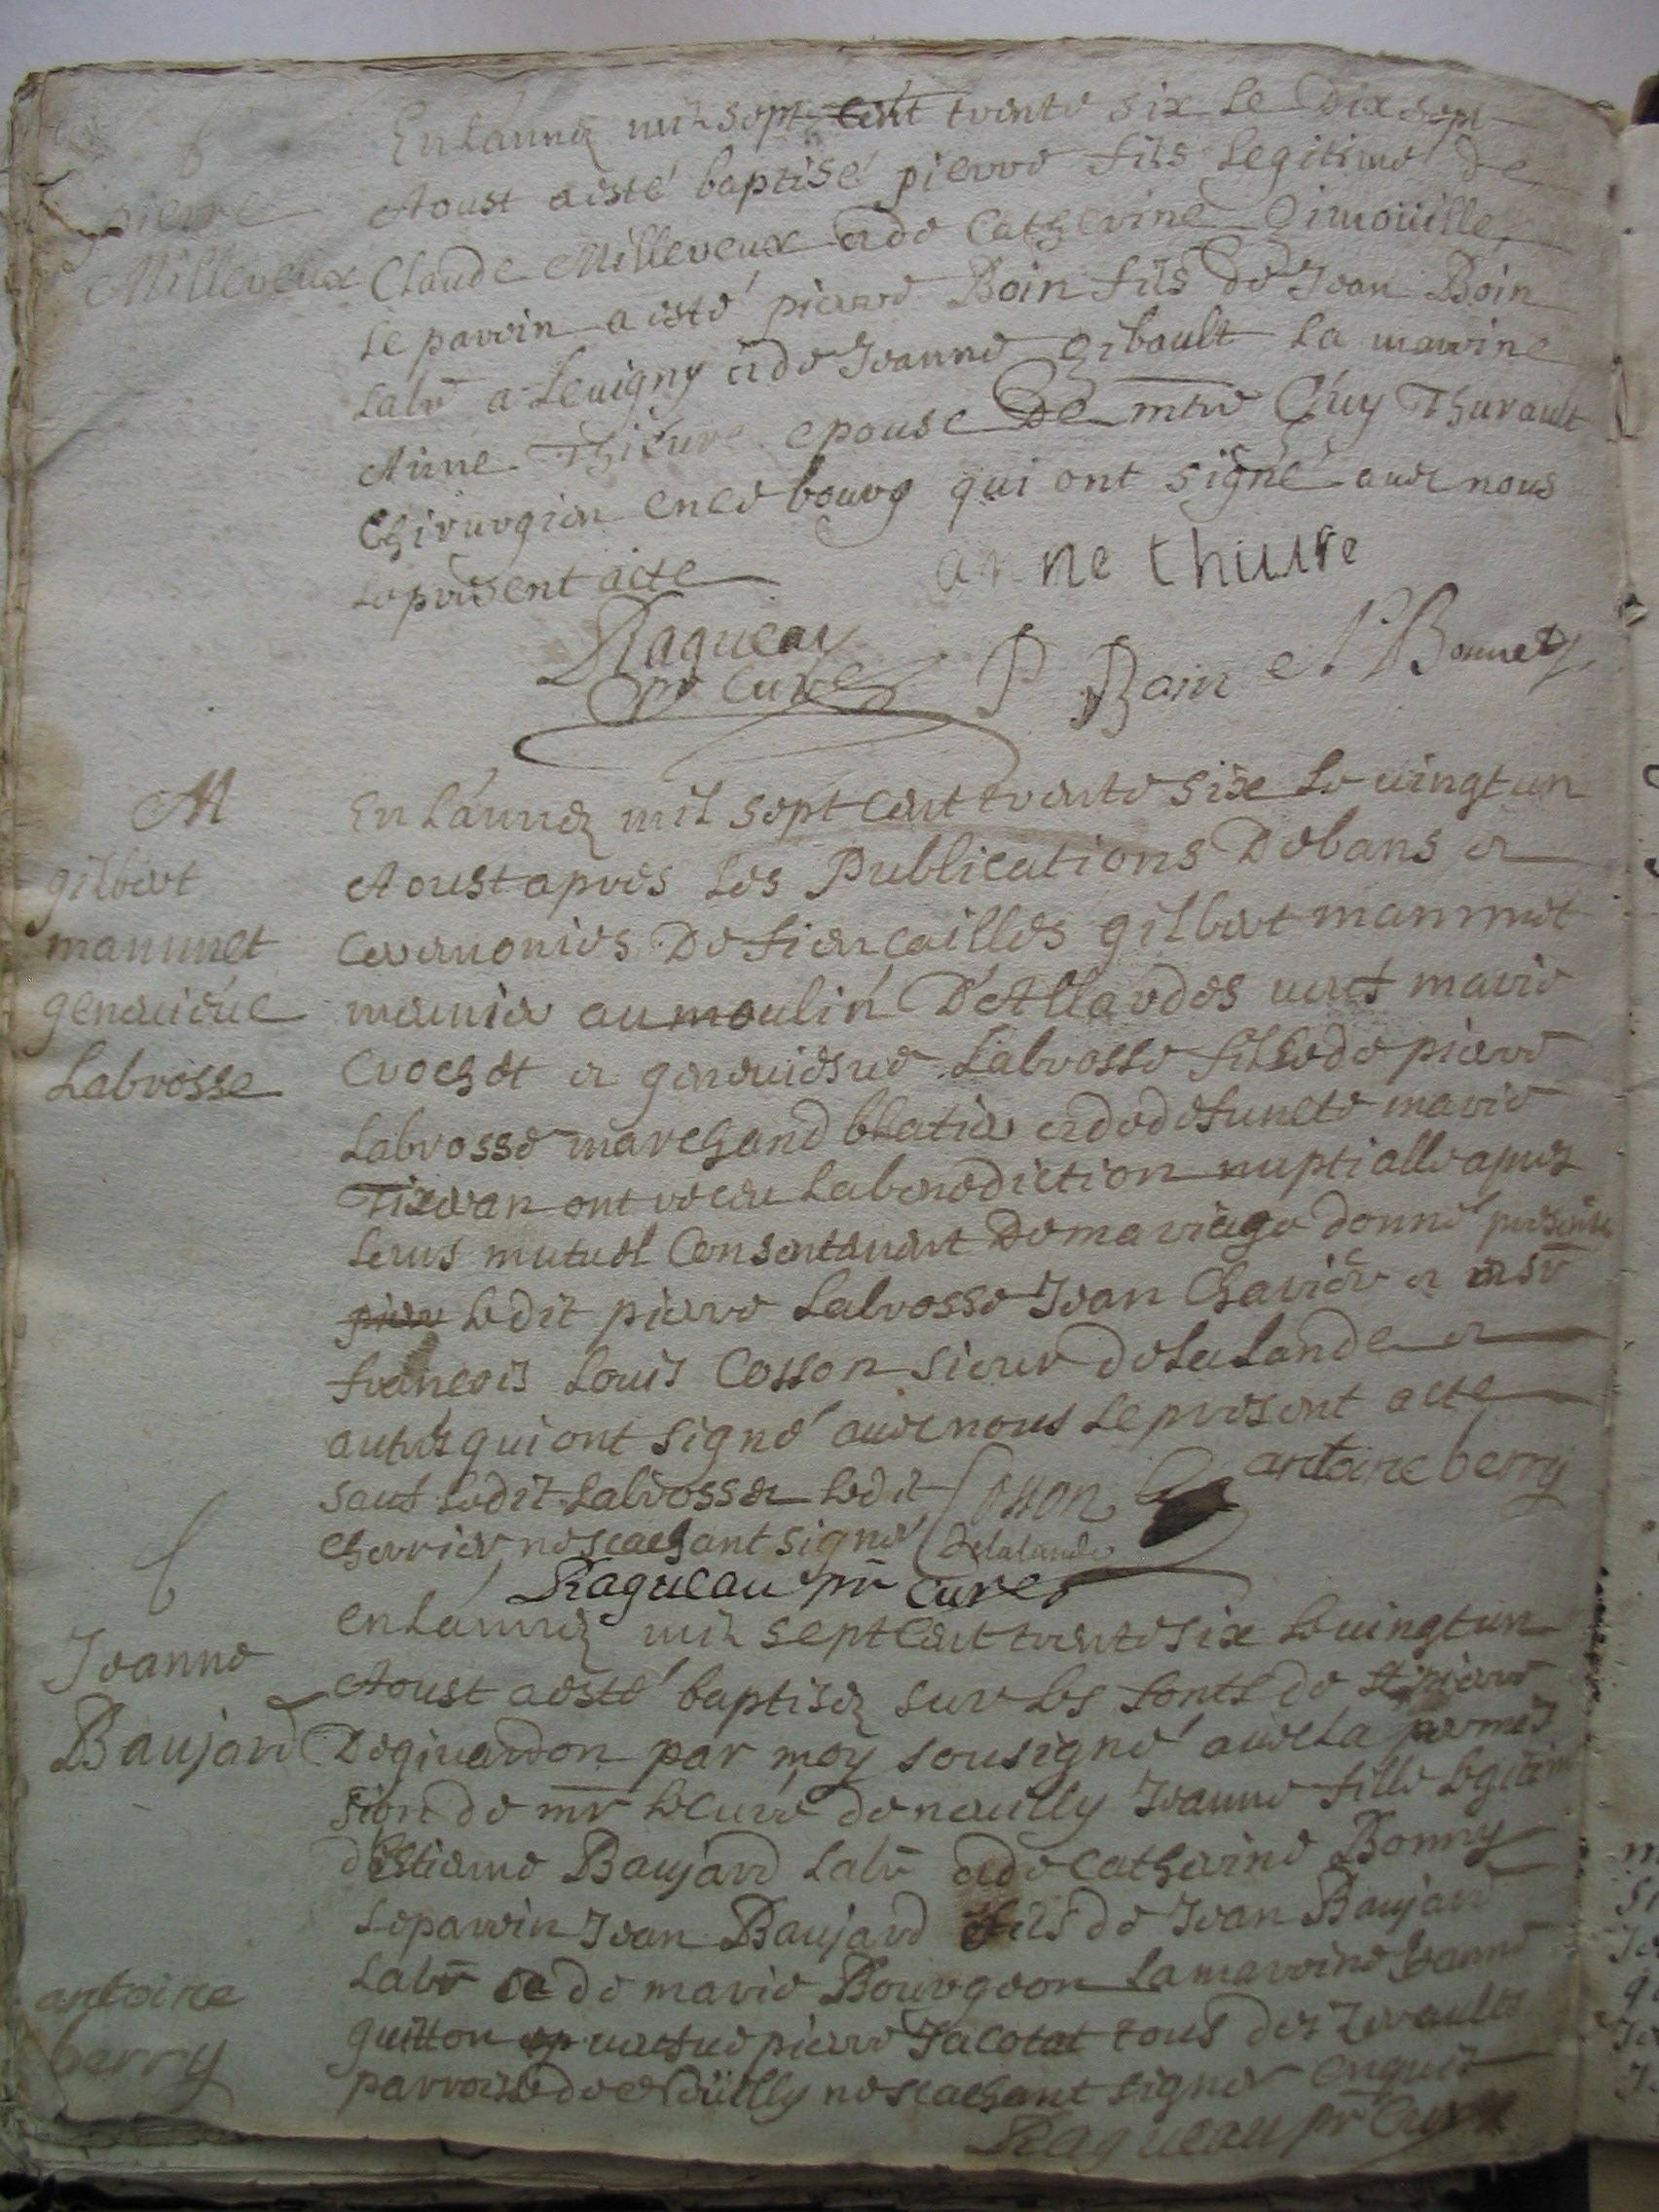 b
pierre
Milleveux
En lannéz mil sept cent trente six le Dix sept
Aoust a esté baptisé pierre fils legitime de
Claude Milleveux et de Catherine Gimoüille,
Le parrin a esté pierre Boin fils de Jean Boin
Labr a Levigny et de Jeanne Gibault La marrine
Anne Thieure epouse De mtre Guy Thurault
Chirurgien en ce bourg qui ont signé avec nous
Le present acte
anne thiure
Ragueau
pr Curé
P Boin et P Bonnet
M
gilbert
mammet
geneuiéue
Labrosse
En Lannéz mil sept cent trente six Le vingt un
Aoust apres Les Publications De bans et
Ceremonies De fiencailles gilbert mammet
meunier au moulin D'Allardes veuf marie
Crochet et geneuiesue Labrosse fille de pierre
Labrosse marchand blatier et de defuncte marie
Tixeran ont receu La benediction nuptialle apres
Leurs mutuel Consentement De mariage donné presents
pier Ledit pierre Labrosse Jean Charier et
francois Louis Cosson sieur de La Lande et
autres qui ont signé avec nous Le present acte
sauf Ledit Labrosse et Ledit
Charrier ne scachant signer
Cosson
Delalande
antoire berry
Ragueau pr Curé
b
Jeanne
Baujard
en Lannéz mil sept Cent trente six Le vingt un
Aoust a esté baptiséz sur Les fonts de St pierre
De givardon par moy sousigné avec La permis
sion de mr Le Curé de neuilly Jeanne fille Legitim
d'Estienne Baujard Labr et de Catherine Bonny
Le parrin Jean Baujard fils de Jean Baujard
Labr et de marie Bourgeon La marrine Jeanne
guitton ep veufue pierre Jacotot tous des
parroisse de Nëüilly ne scachant signer enquis
Ragueau pr Curé
antoire
berry